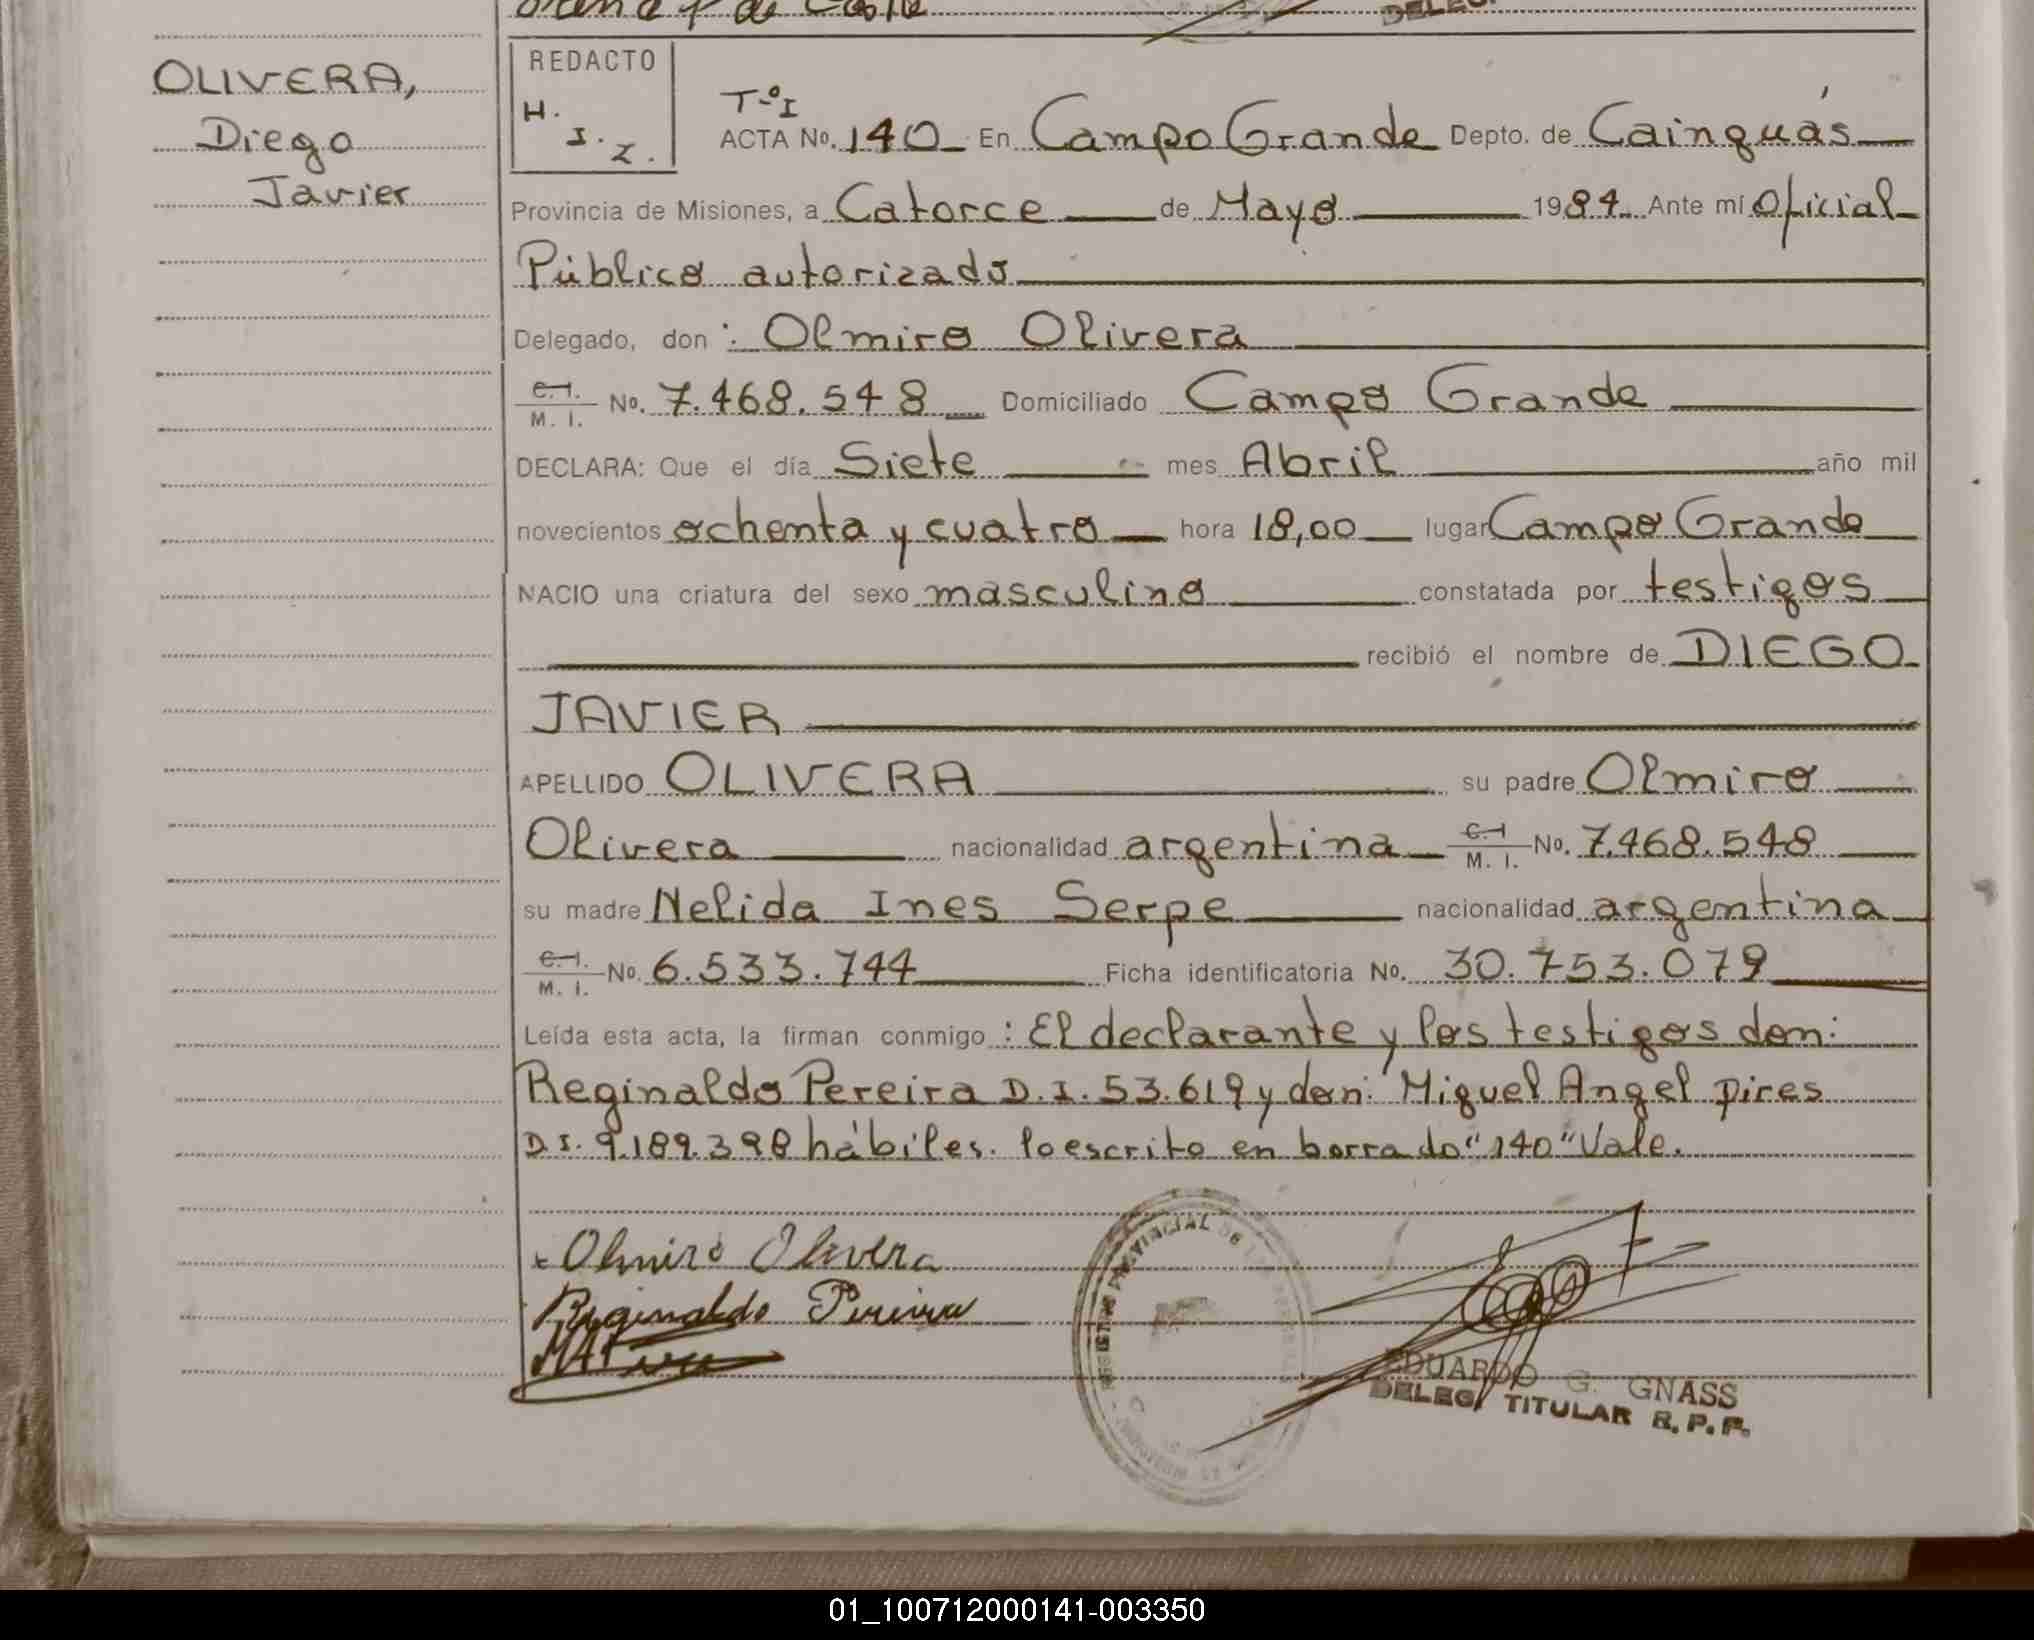 OLIVERA,
Diego
Javier
REDACTO
H.
I. Z.
T-º I
ACTA No. 140 En Campo Grande Depto. de Cainguás
Provincia de Misiones, a Catorce de Mayo 1984 Ante mí Oficial
Público autorizado
Delegado, don : Olmiro Olivera
C.I. M. I. No. 7.468.548 Domiciliado Campo Grande
DECLARA: Que el día Siete mes Abril año mil
novecientos ochenta y cuatro hora 18,00 lugar Campo Grande
NACIO una criatura del sexo masculino constatada por testigos
recibió el nombre de DIEGO
JAVIER
APELLIDO OLIVERA su padre Olmiro
Olivera nacionalidad argentina C.I M. I. No. 7.468.548
su madre Nelida Ines Serpe nacionalidad argentina
C.I. M. I. No. 6.533.744 Ficha identificatoria No. 30.753.079
Leída esta acta, la firman conmigo : El declarante y los testigos don:
Reginaldo Pereira D.I. 53.619 y don: Miguel Angel Pires
D I. 9.189.398 hábiles. lo escrito en borrado "140" Vale.
Olmiro Olivera
Reginaldo Pereira
EDUARDO G. GNASS
DELEG. TITULAR R.P.P.
01_100712000141-003350